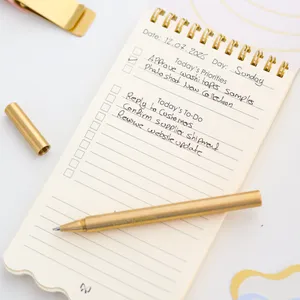 Date: 12.07.2025 Day: Sunday
Today's Priorities
Approve washi tapes samples
Photo shoot New Collection
Today's To-Do
Reply to Customers
Confirm supplier shipment
Review website update